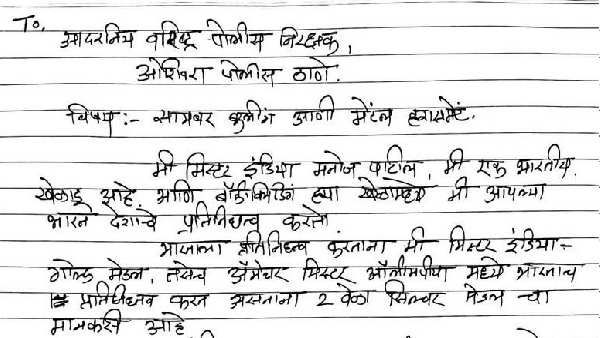 To,
आदरनिय वरिष्ठ पोलीस निरक्षक,
ओशिवरा पोलीस ठाणे.
विषय:- सायबर बुलींग आणी मेंटल हरासमेंट.
मी मिस्टर इंडिया मनोज पाटील, मी एक भारतीय
खेळाडू आहे. आणि बॉडीबिल्डिंग ह्या खेळामध्ये मी आपल्या
भारत देशाचे प्रतिनिधीत्व करतो.
भारताला प्रतिनिधीत्व करताना मी मिस्टर इंडिया-
गोल्ड मेडल, तसेच ॲमेचर मिस्टर ऑलीमपीया मध्ये भारताच
प्रतिनिधीत्व करत असताना 2 वेळा सिल्वर मेडल चा
मानकरी आहे.